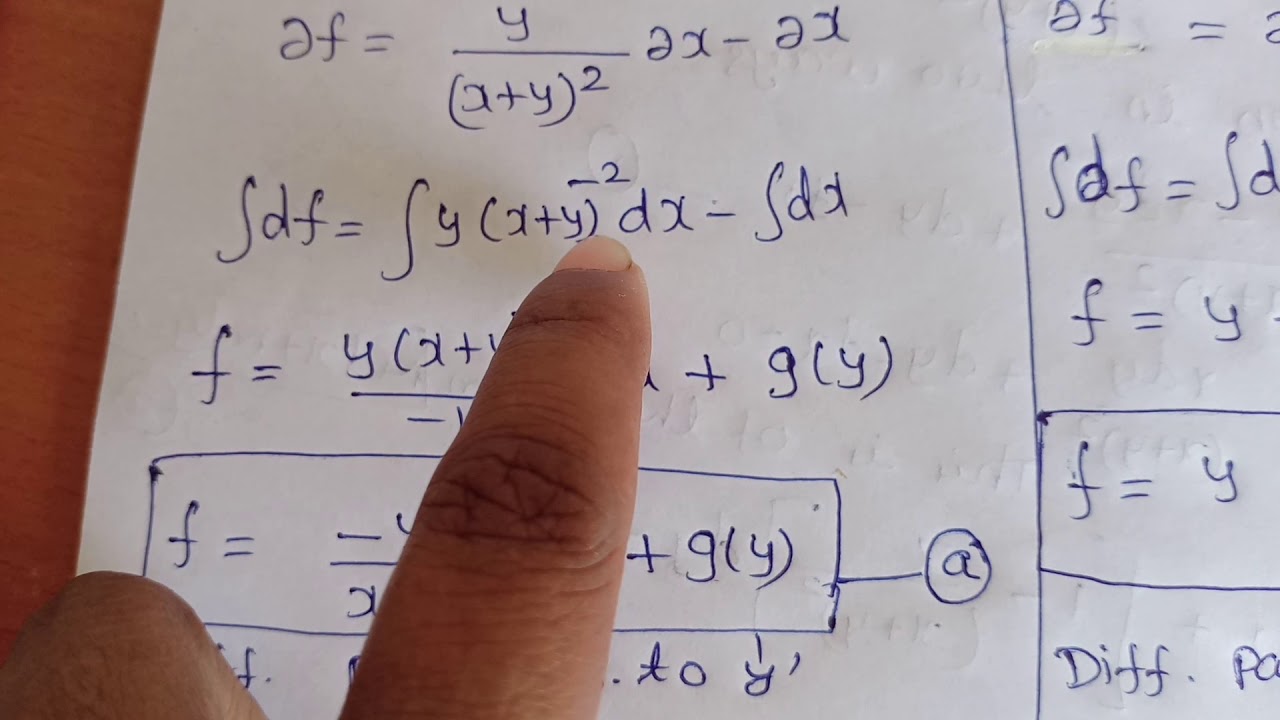 ∂f = y/(x+y)² ∂x − ∂x
∫df = ∫y(x+y)⁻² dx − ∫dx
f = y(x+y / −1 + g(y)
f = −y / x + g(y)
ⓐ
to 'y'
∂f =
∫df = ∫d
f = y
f = y
Diff. Pa